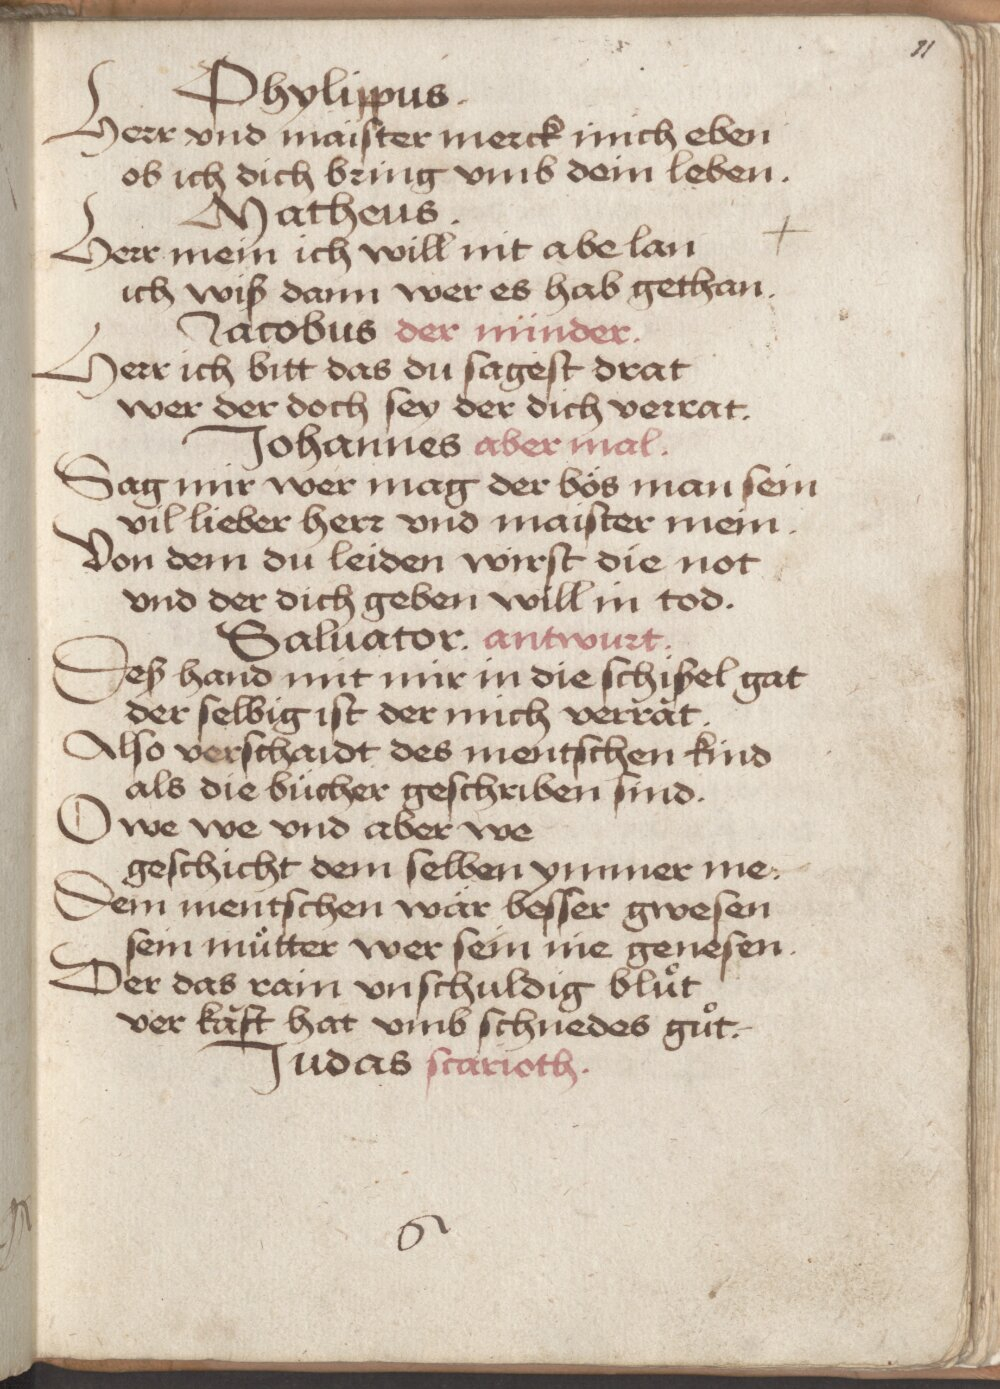 11
Phylippus.
Herr vnd maister merck mich eben
ob ich dich bring vmb dein leben.
Matheus.
Herr mein ich will nit abe lan
ich wiß dann wer es hab gethan.
Jacobus der minder.
Herr ich bitt das du sagest drat
wer der doch sey der dich verrat.
Johannes aber mal.
Sag mir wer mag der bös man sein
vil lieber herr vnd maister mein.
Von dem du leiden wirst die not
vnd der dich geben will in tod.
Saluator. antwurt.
Deß hand mit mir in die schißel gat
der selbig ist der mich verrät.
Also verschaidt des mentschen kind
als die bücher geschriben sind.
O we we vnd aber we
geschicht dem selben ymmer me.
Dem mentschen wär besser gwesen
sein muͦtter wer sein nie genesen.
Der das rain vnschuldig bluͦt
ver kăft hat vmb schnedes guͦt.
Judas scarioth.